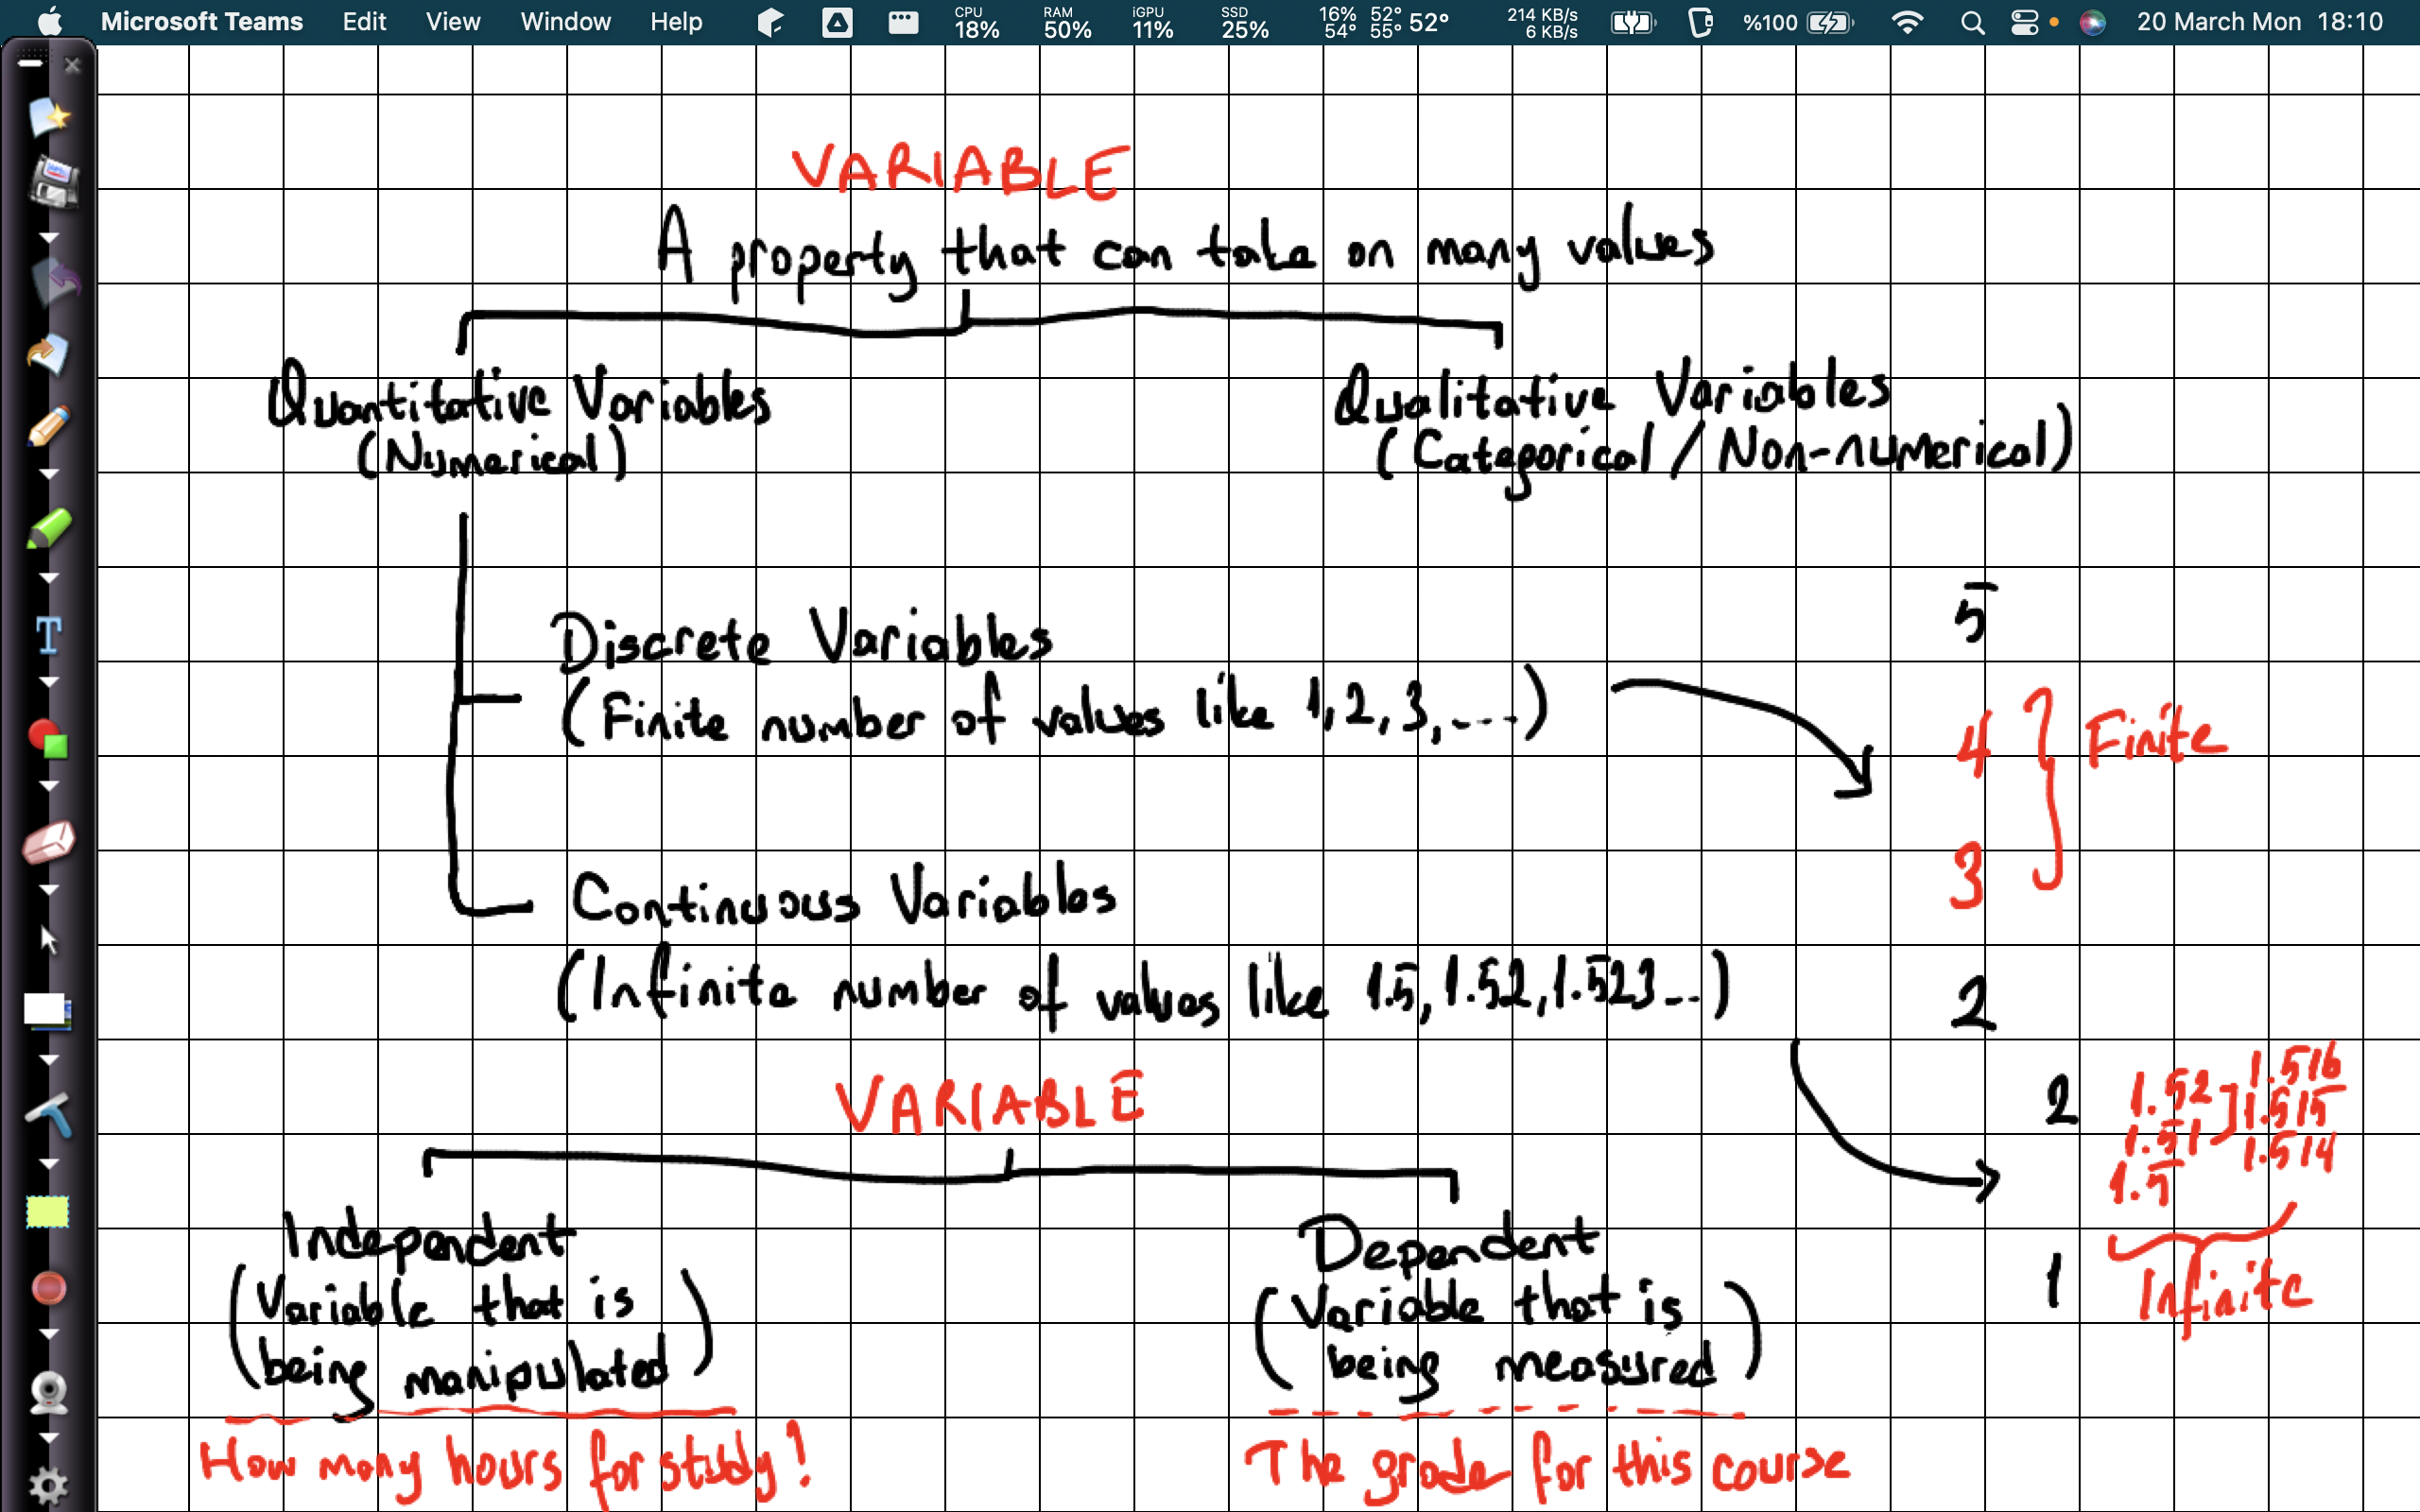 Microsoft Teams Edit View Window Help CPU 18% RAM 50% iGPU 11% SSD 25% 16% 54° 52° 55° 52° 214 KB/s 6 KB/s %100 20 March Mon 18:10
VARIABLE
A property that can take on many values
Quantitative Variables
(Numerical)
Qualitative Variables
(Categorical / Non-numerical)
Discrete Variables
(Finite number of values like 1,2,3,....)
5
4
3
2
Finite
Continuous Variables
(Infinite number of values like 1.5,1.52,1.523...)
2
1
1.52
1.51
1.5
1.516
1.515
1.514
Infinite
VARIABLE
Independent
(Variable that is
being manipulated)
How many hours for study!
Dependent
(Variable that is
being measured)
The grade for this course
T